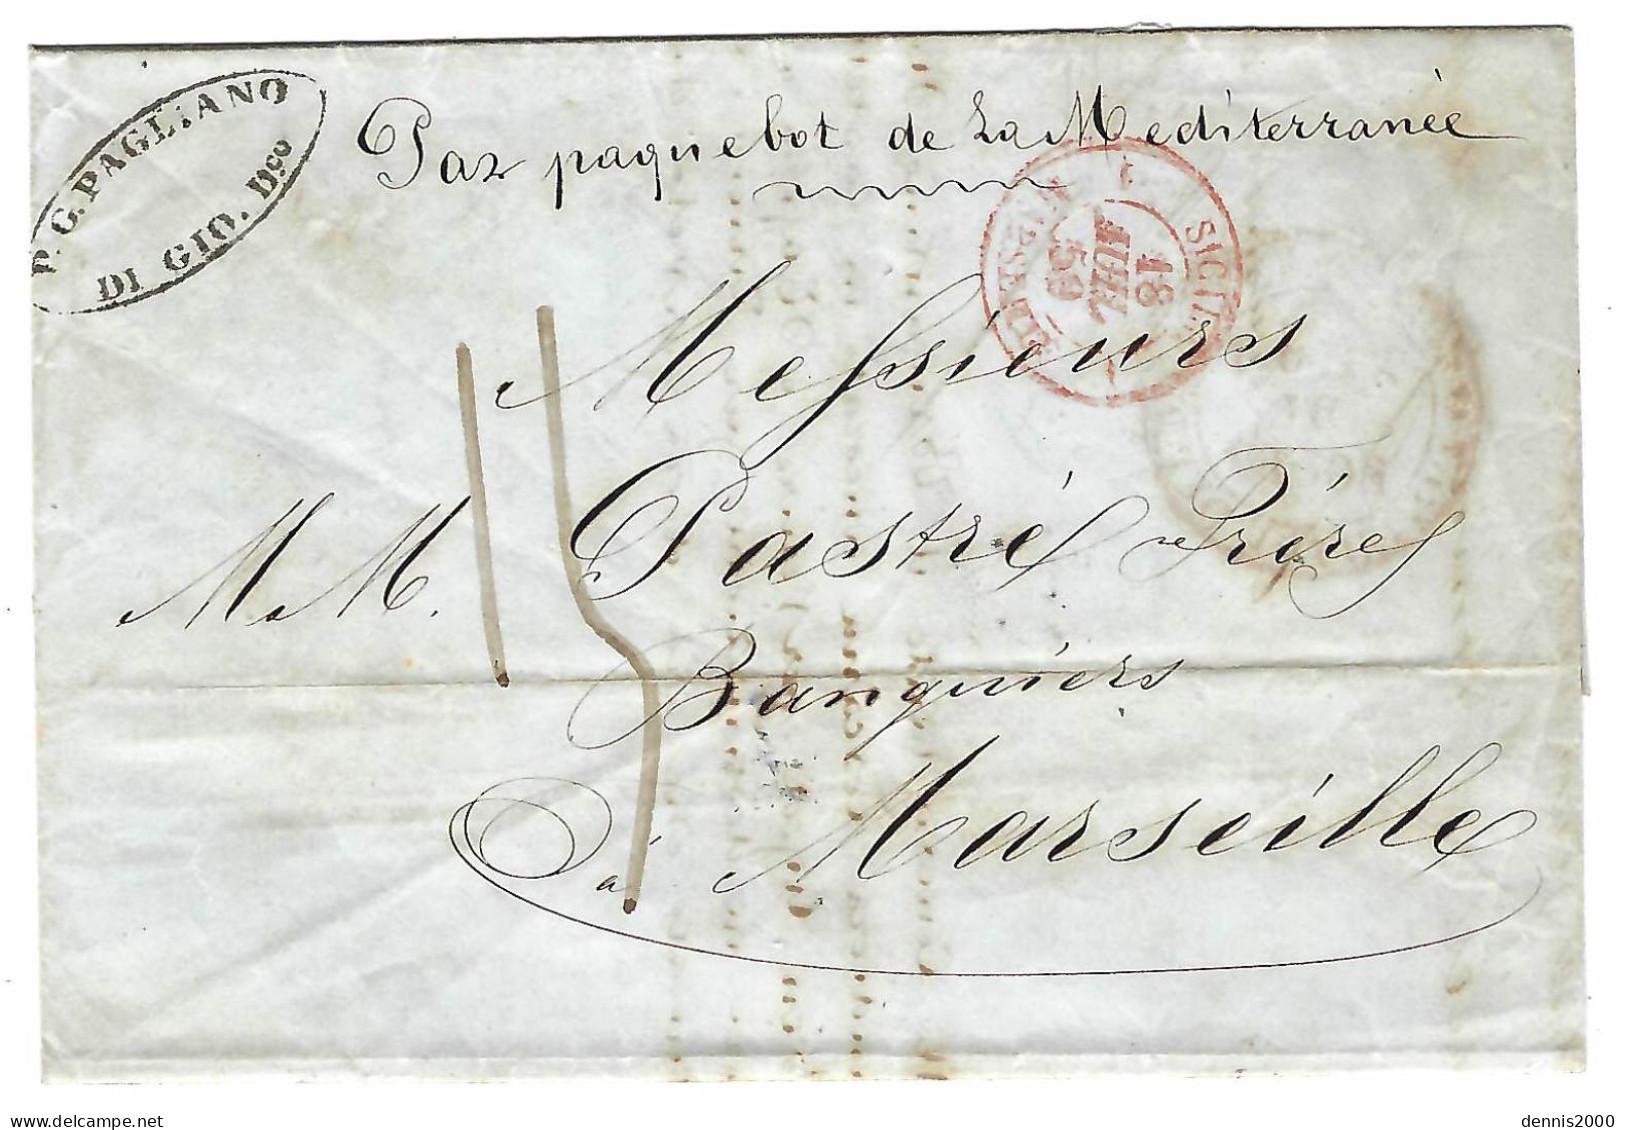 P. G. PAGLIANO
DI GIO. Dco
Par paquebot de La Mediterranèe
SICIL
18
JUIL
59
MARSEILLE
Messieurs
15
M. M. Pastré Frères
Banquiers
à Marseille
delcampe.net
dennis2000